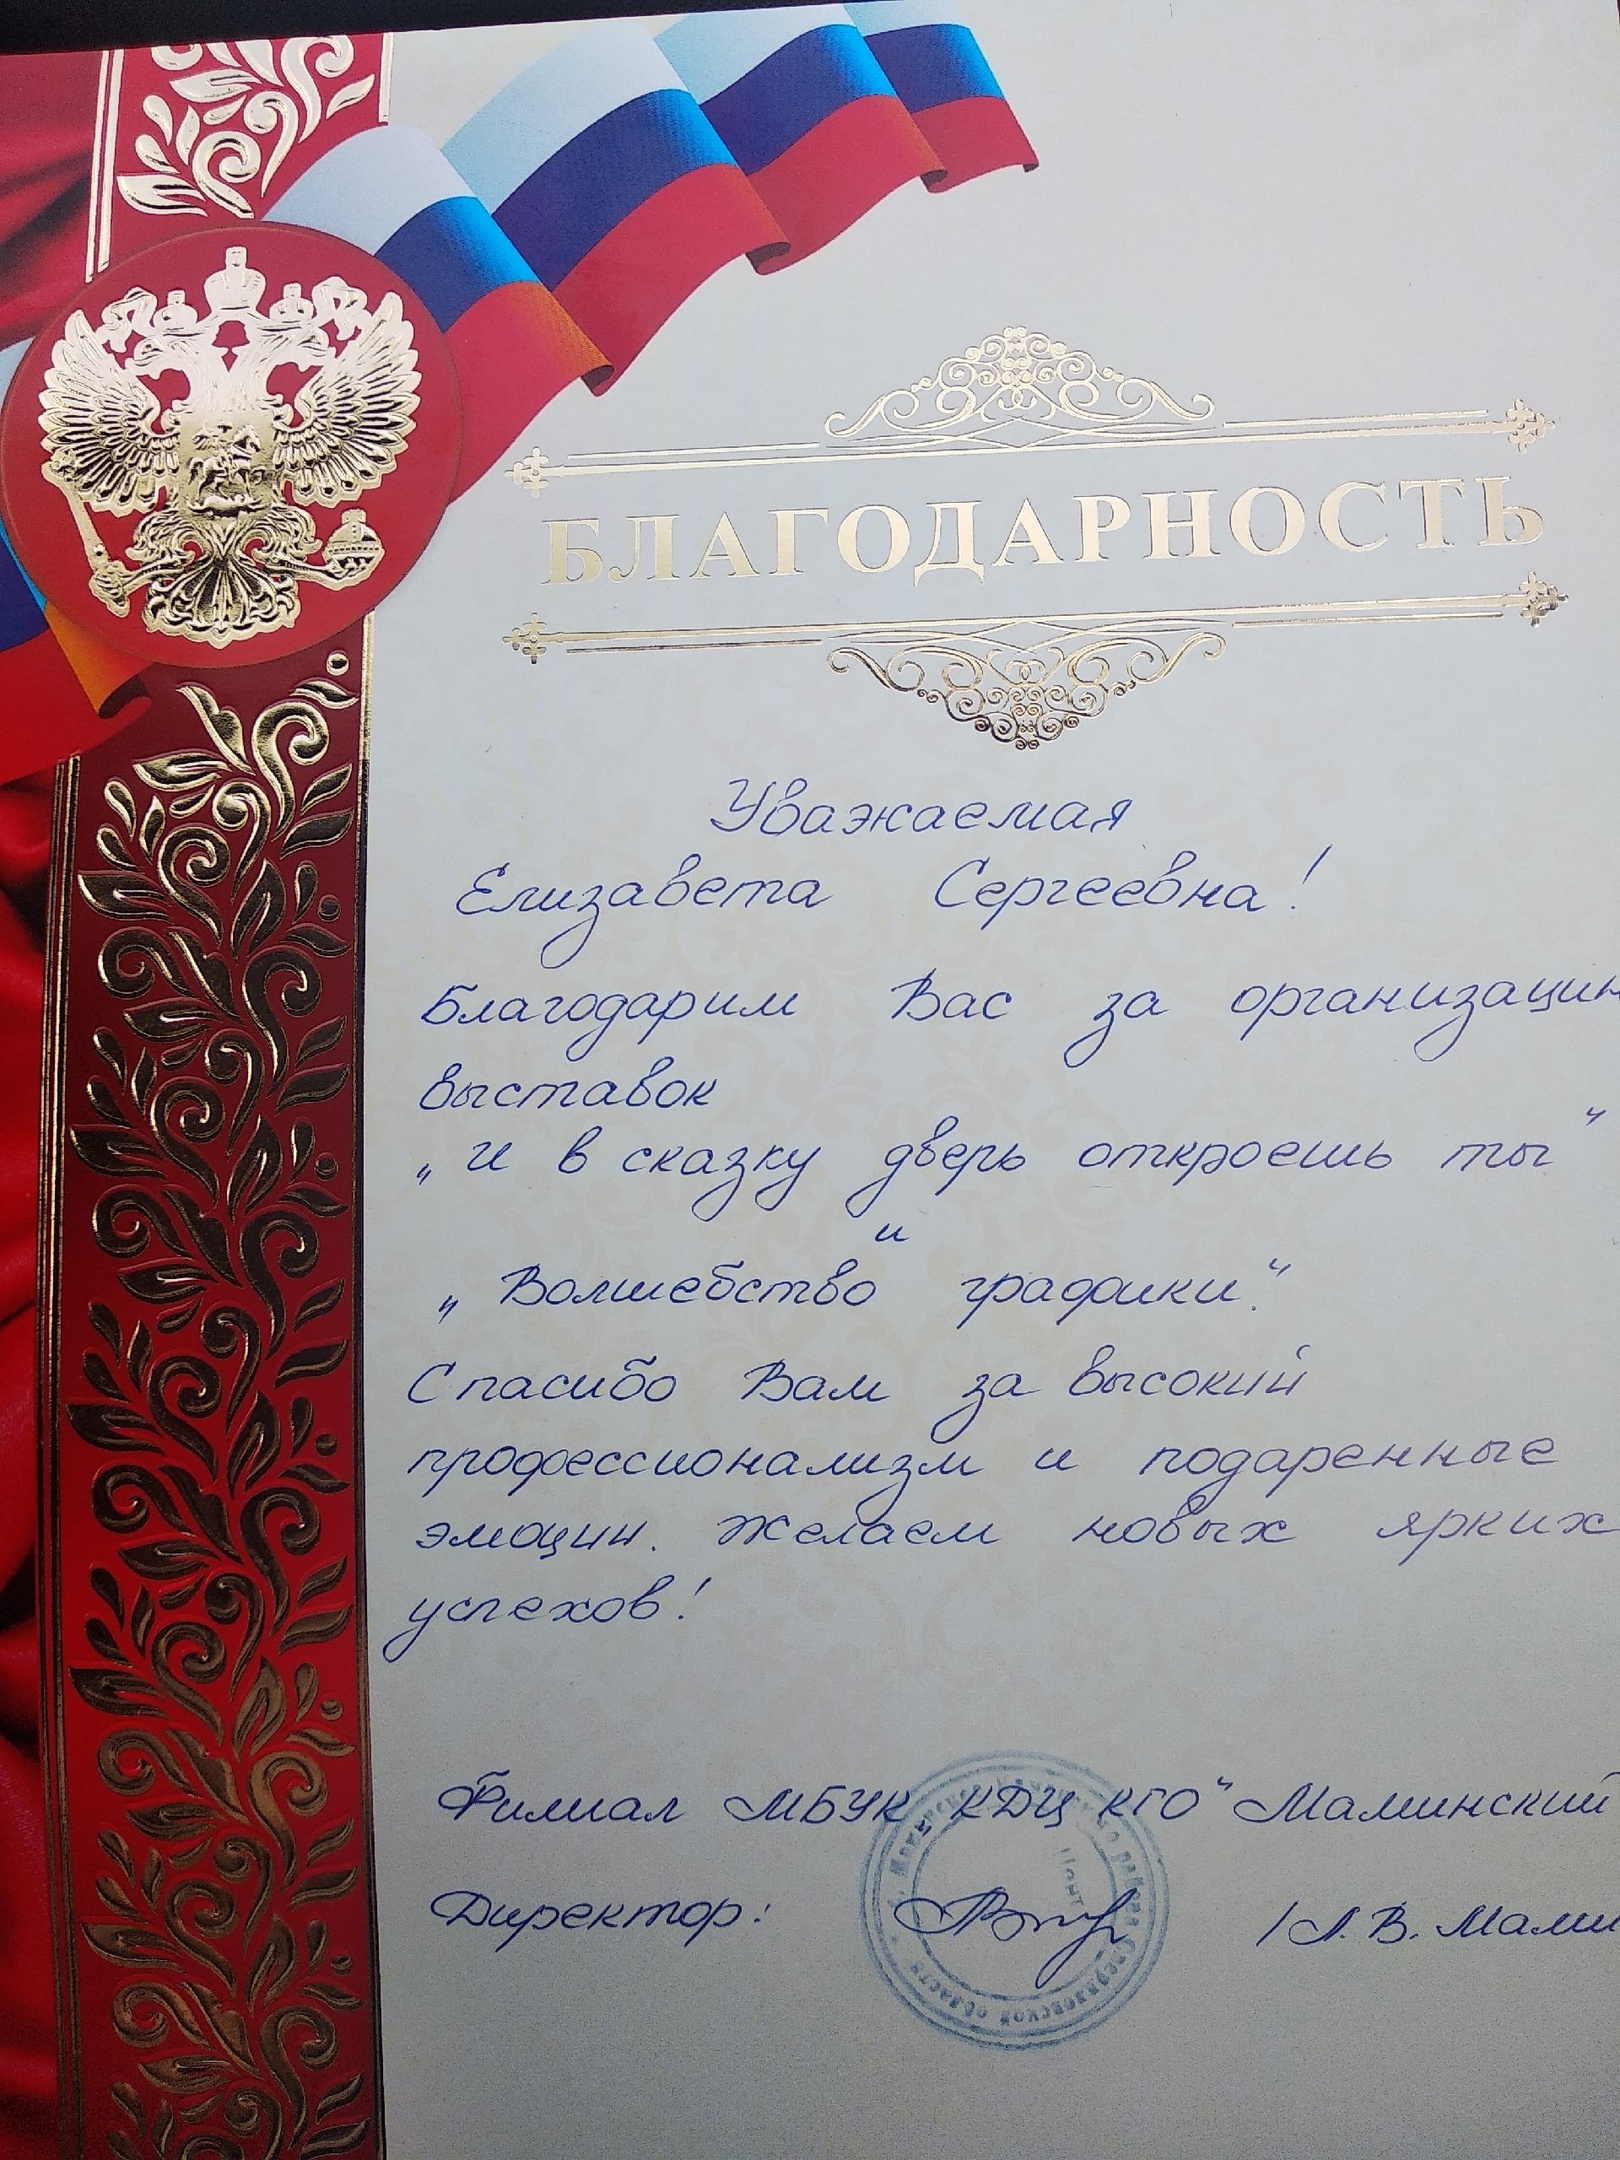 БЛАГОДАРНОСТЬ
Уважаемая
Елизавета Сергеевна!
Благодарим Вас за организации
выставок
„И в сказку дверь откроешь ты“
и
„Волшебство графики“.
Спасибо Вам за высокий
профессионализм и подаренные
эмоции. Желаем новых ярких
успехов!
Филиал МБУК „КДЦ КГО“ Маминский
Директор: /Л.В. Мами